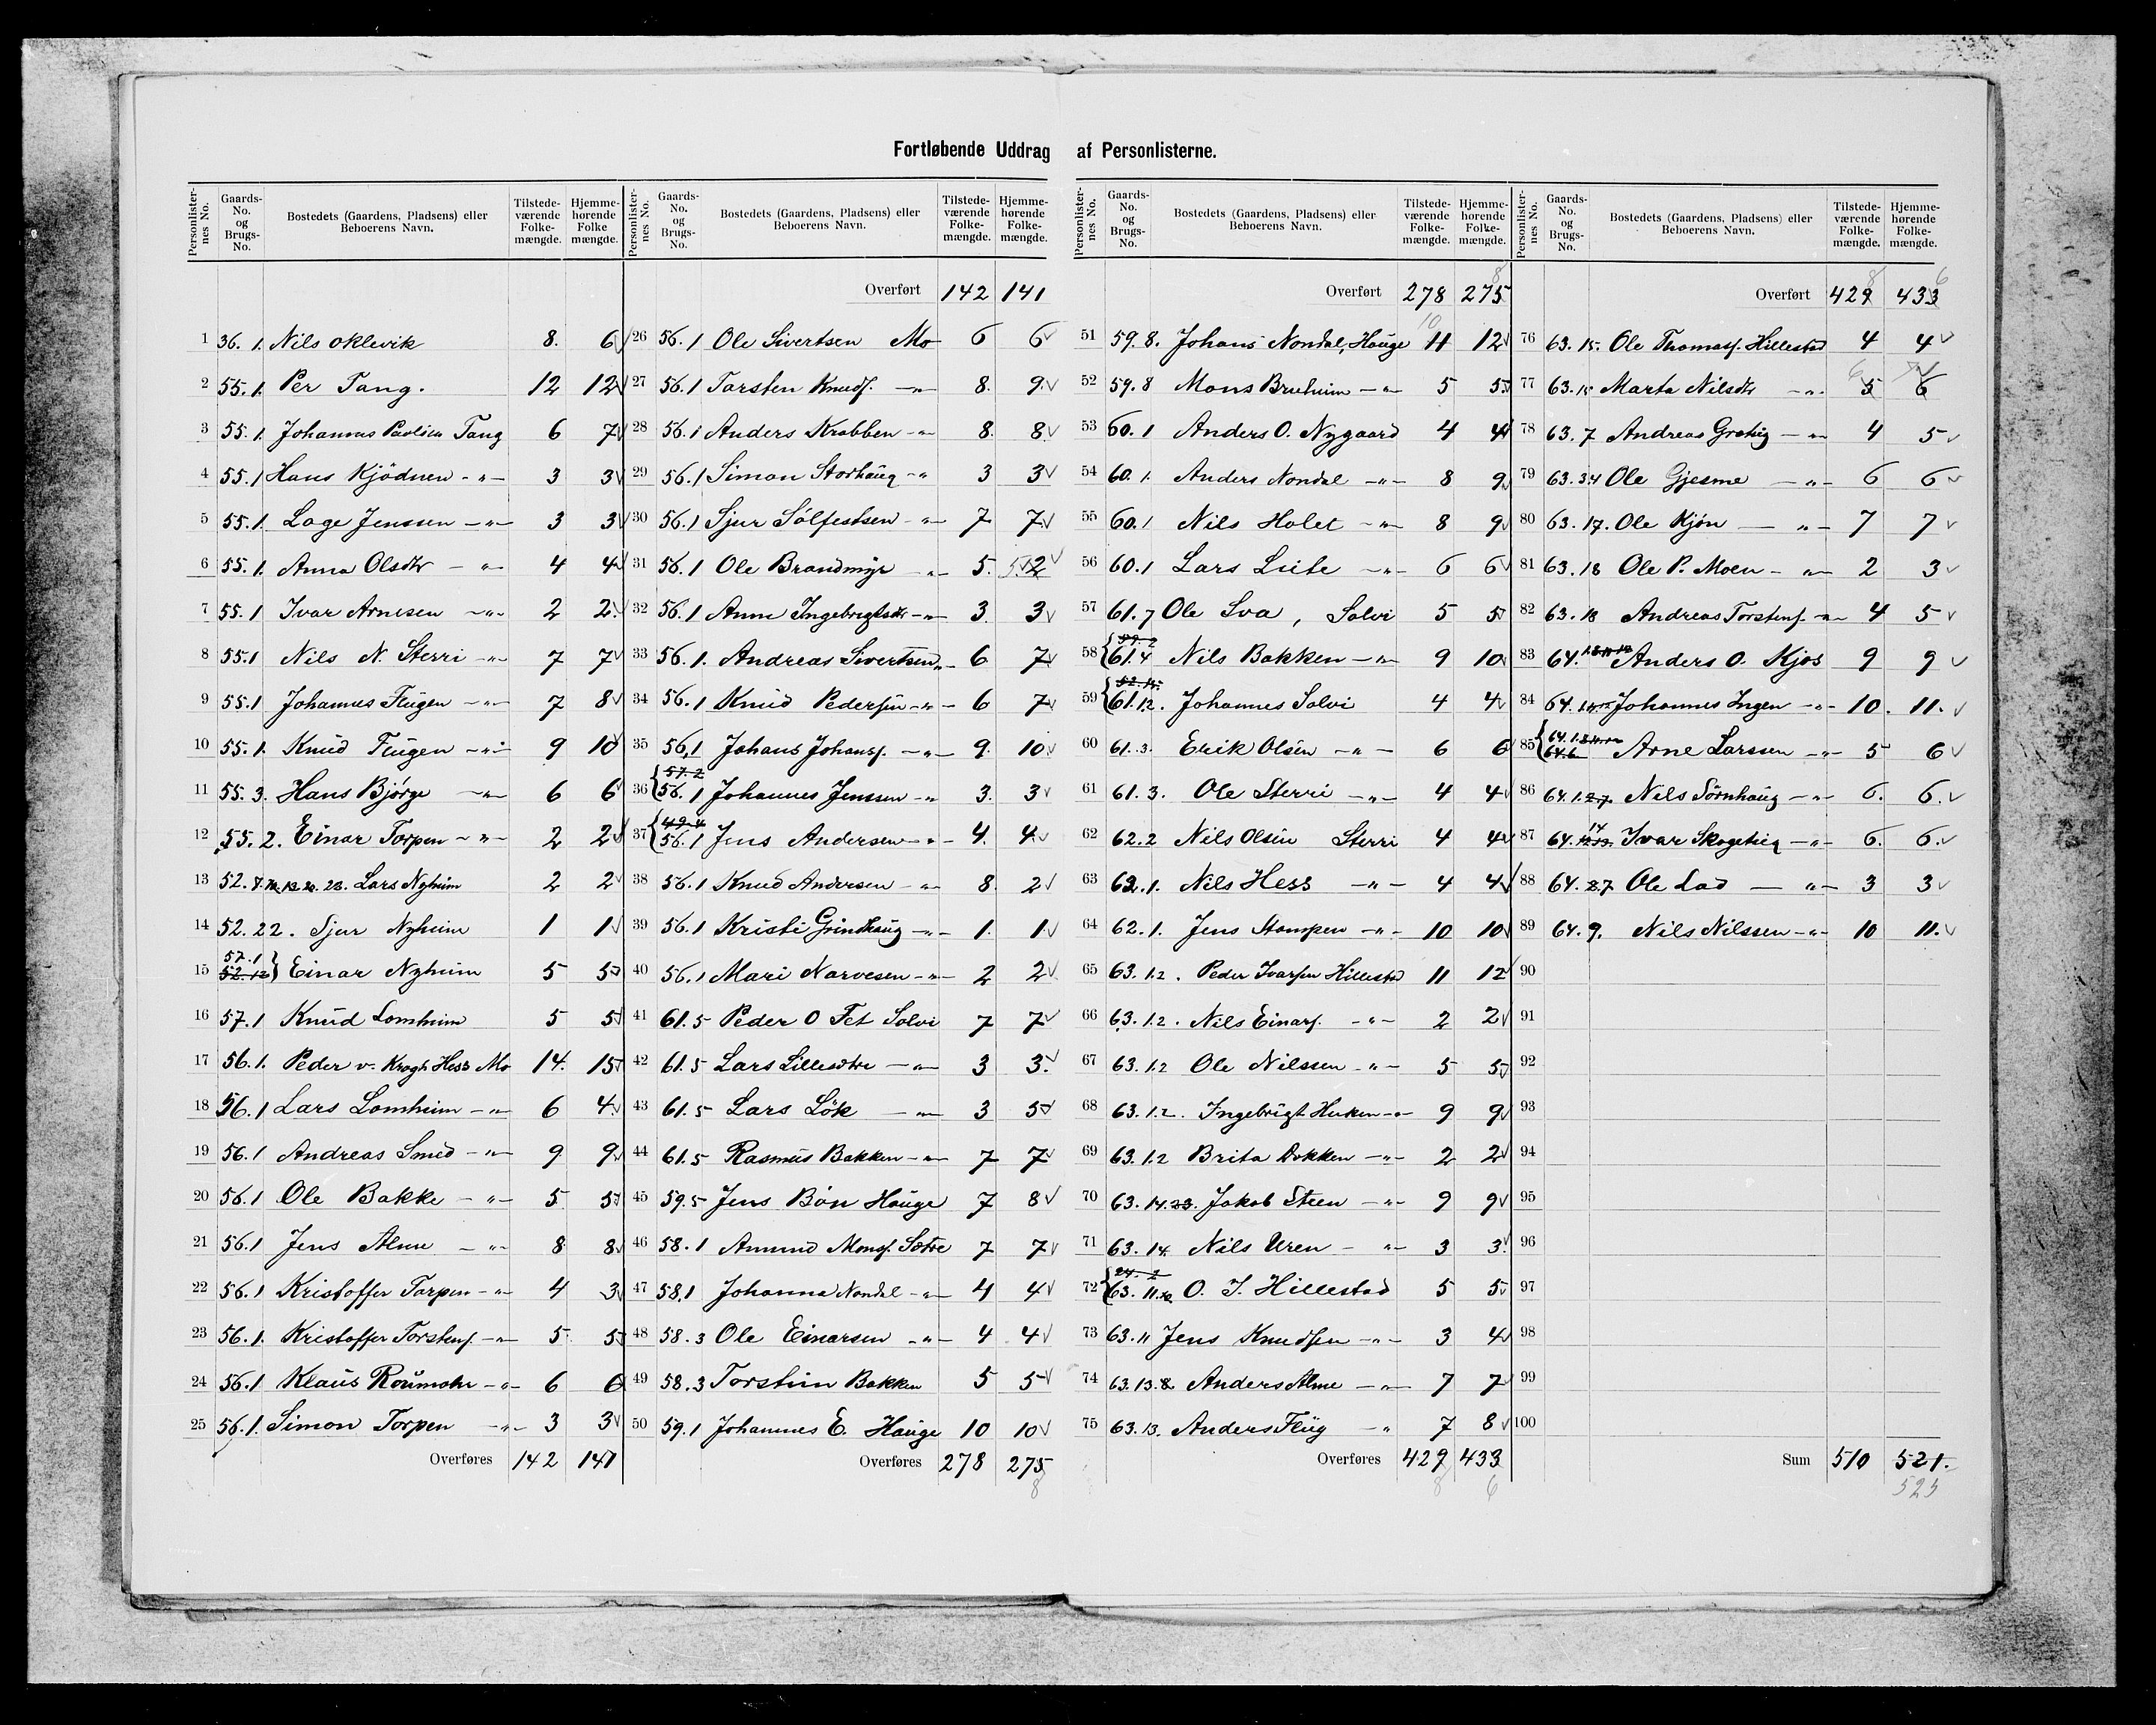 Fortløbende Uddrag af Personlisterne.
Personlister-nes No. Gaards-No. og Brugs-No. Bostedets (Gaardens, Pladsens) eller Beboerens Navn. Tilstede-værende Folke-mængde. Hjemme-hørende Folke mængde.
1 36. 1. Nils Oklevik 8. 6
2 55. 1. Per Tang. 12 12
3 55. 1. Johannes Paulsen Tang 6 7
4 55. 1 Hans Kjödnen -"- 3 3
5 55. 1. Lage Jenssen -"- 3 3
6 55. 1. Anna Olsdtr -"- 4 4
7 55. 1 Ivar Arnesen -"- 2 2
8 55.1 Nils N. Sterri -"- 7 7
9 55.1 Johannes Flugen -"- 7 8
10 55. 1. Knud Flugen -"- 9 10
11 55. 3. Hans Bjørge -"- 6 6
12 55. 2. Einar Torpen -"- 2 2
13 52. Lars Nyheim 2 2
14 52. 22. Sjur Nyheim 1 1
15 57. 1 52. 12 Einar Nyheim 5 5
16 57.1 Knud Lomheim 5 5
17 56. 1. Peder v. Krogh Hess Mo 14. 15
18 56. 1 Lars Lomheim -"- 6 4
19 56. 1 Andreas Smed -"- 9 9
20 56. 1 Ole Bakke -"- 5 5
21 56.1 Jens Alme -"- 8 8
22 56. 1 Kristoffer Torpen -"- 4 3
23 56. 1. Kristoffer Torstens. -"- 5 5
24 56. 1 Klaus Roumohr -"- 6 6
25 56. 1. Simon Torpen -"- 3 3
Overføres 142 141
Personlister-nes No. Gaards-No. og Brugs-No. Bostedets (Gaardens, Pladsens) eller Beboerens Navn. Tilstede-værende Folke-mængde. Hjemme-hørende Folke-mængde.
Overført 142 141
26 56. 1 Ole Sivertsen Mo 6 6
27 56. 1 Torsten Knuds. -"- 8. 9
28 56. 1 Anders Krabben -"- 8. 8
29 56. 1 Simon Storhaug -"- 3 3
30 56. 1 Sjur Sölfestsen -"- 7 7
31 56. 1 Ole Brandmyr -"- 5. 5 2
32 56. 1 Anne Ingebrigtsdtr -"- 3. 3
33 56. 1. Andreas Sivertsen -"- 6 7
34 56. 1 Knud Pedersen -"- 6 7
35 56,1 Johans Johans. -"- 9. 10
36 57. 2 56. 1 Johannes Jenssen -"- 3. 3
37 49. 4 56. 1 Jens Andersen -"- 4. 4
38 56. 1 Knud Andersen -"- 8. 2
39 56. 1 Kristi Grindhaug -"- 1. 1
40 56. 1 Mari Narvesen -"- 2 2
41 61. 5 Peder O Fet Solvi 7 7
42 61. 5 Lars Lillesøtre -"- 3 3.
43 61. 5 Lars Lök -"- 3 5
44 61. 5 Rasmus Bakken -"- 7 7
45 59. 5 Jens Bön Hauge 7 8
46 58. 1 Amund Mons. Sætre 7 7
47 58.1 Johanna Nondal -"- 4 4
48 58. 3 Ole Einarsen -"- 4 4
49 58. 3 Torstein Bakken 5 5
50 59. 1 Johannes E. Hauge 10 10
Overføres 278 275
8
Personlister-nes No. Gaards-No. og Brugs-No. Bostedets (Gaardens, Pladsens) eller Beboerens Navn. Tilstede-værende Folke-mængde. Hjemme-hørende Folke-mængde.
8
Overført 278 275
10
51 59. 8. Johans Nondal, Hauge 11 12
52 59. 8 Mons Bruheim -"- 5 5
53 60. 1 Anders O. Nygaard 4 4
54 60. 1. Anders Nondal -"- 8 9
55 60. 1 Nils Holet -"- 8 9
56 60. 1 Lars Leite -"- 6 6
57 61. 7 Ole Sva, Solvi 5 5
58 59. 2 61. 4 Nils Bakken -"- 9 10
59 61. 12. Johannes Solvi 4 4
60 61. 3. Erik Olsen -"- 6 6
61 61. 3. Ole Sterri -"- 4 4
62 62. 2 Nils Olsen Sterri 4 4
63 62. 1. Nils Hess -"- 4 4
64 62. 1. Jens Stampen -"- 10 10
65 63. 1.2. Peder Ivarsen Hillestad 11 12
66 63. 1.2. Nils Einars. -"- 2 2
67 63. 1.2 Ole Nilssen -"- 5 5
68 63. 1.2. Ingebrigt Heken -"- 9 9
69 63. 1.2 Brita Dokken -"- 2 2
70 63. 14. 23. Jakob Steen -"- 9 9
71 63. 14. Nils Uren -"- 3 3
72 24. 2 63. 11. O. J. Hillestad 5 5
73 63. 11 Jens Knudsen -"- 3 4
74 63. 13. 8. Anders Alme -"- 7 7
75 63. 13. Anders Flug -"- 7 8
Overføres 429 433
8 6
Personlister-nes No. Gaards-No. og Brugs-No. Bostedets (Gaardens, Pladsens) eller Beboerens Navn. Tilstede-værende Folke-mængde. Hjemme-hørende Folke-mængde.
8 6
Overført 429 433
76 63. 15. Ole Thomass. Hillestad 4 4
77 63. 15 Marta Nilsdtr -"- 6 5 6
78 63. 7 Andreas Grøteig -"- 4 5
79 63. 3.4 Ole Gjesme -"- 6 6
80 63. 17. Ole Kjön -"- 7 7
81 63. 18 Ole P. Moen -"- 2 3
82 63. 18 Andreas Torstens. -"- 4 5
83 64. Anders O. Kjos 9 9
84 64. Johannes Ingen -"- 10. 11.
85 64. 64. 6 Arne Larssen -"- 5 6
86 64. 1. 2. 7. Nils Sörnhaug -"- 6. 6.
87 64. 14 Ivar Skogeteig -"- 6. 6.
88 64. 8. 7 Ole Lad -"- 3 3
89 64. 9. Nils Nilssen -"- 10 11.
90
91
92
93
94
95
96
97
98
99
100
Sum 510 521.
525